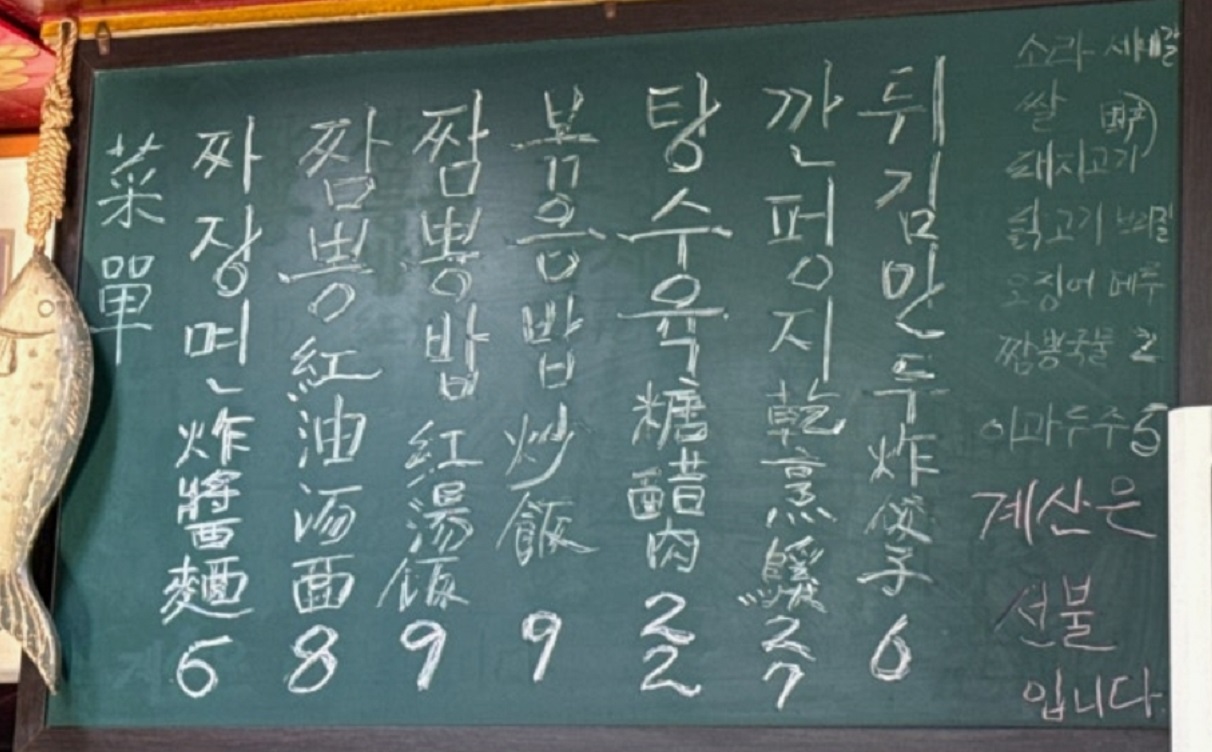 菜單
짜장면 炸醬麵 6
짬뽕 紅油湯面 8
짬뽕밥 紅湯飯 9
볶음밥 炒飯 9
탕수육 糖醋肉 22
깐펑지 乾烹鷄 27
튀김만두 炸餃子 6
소라
쌀
돼지고기
닭고기 브라질
오징어 페루
짬뽕국물 2
이과두주 5
계산은
선불
입니다